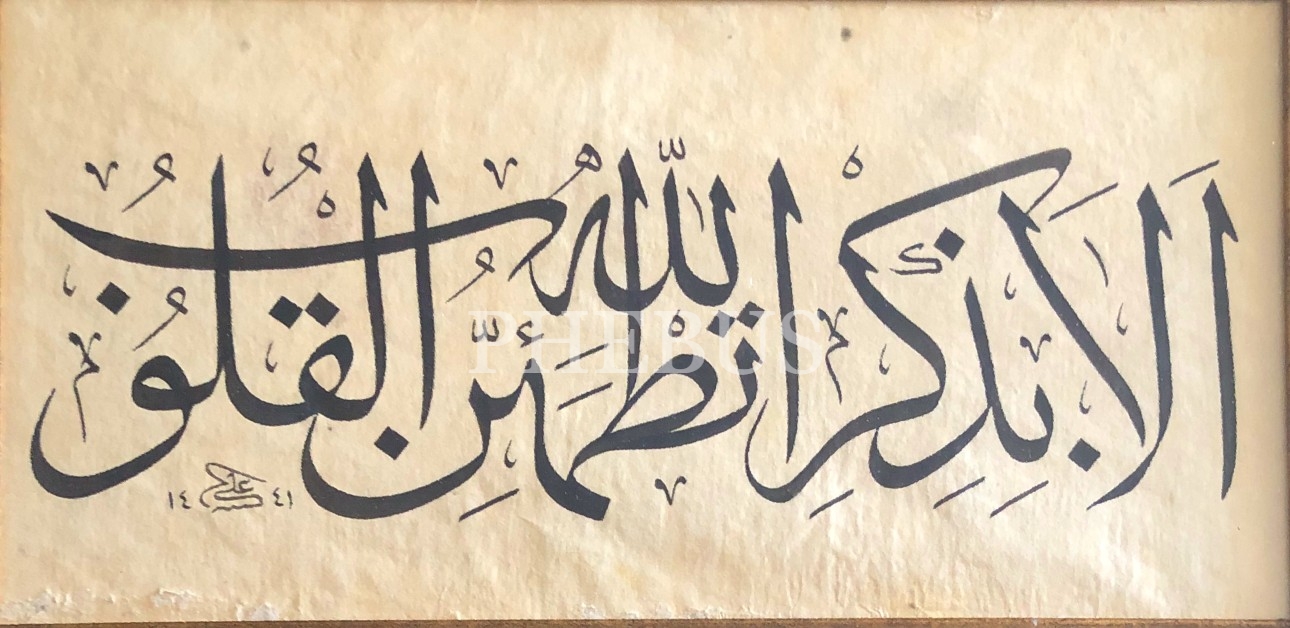 أَلَا بِذِكْرِ اللّٰهِ تَطْمَئِنُّ الْقُلُوبُ
١٤٤١
PHEBUS